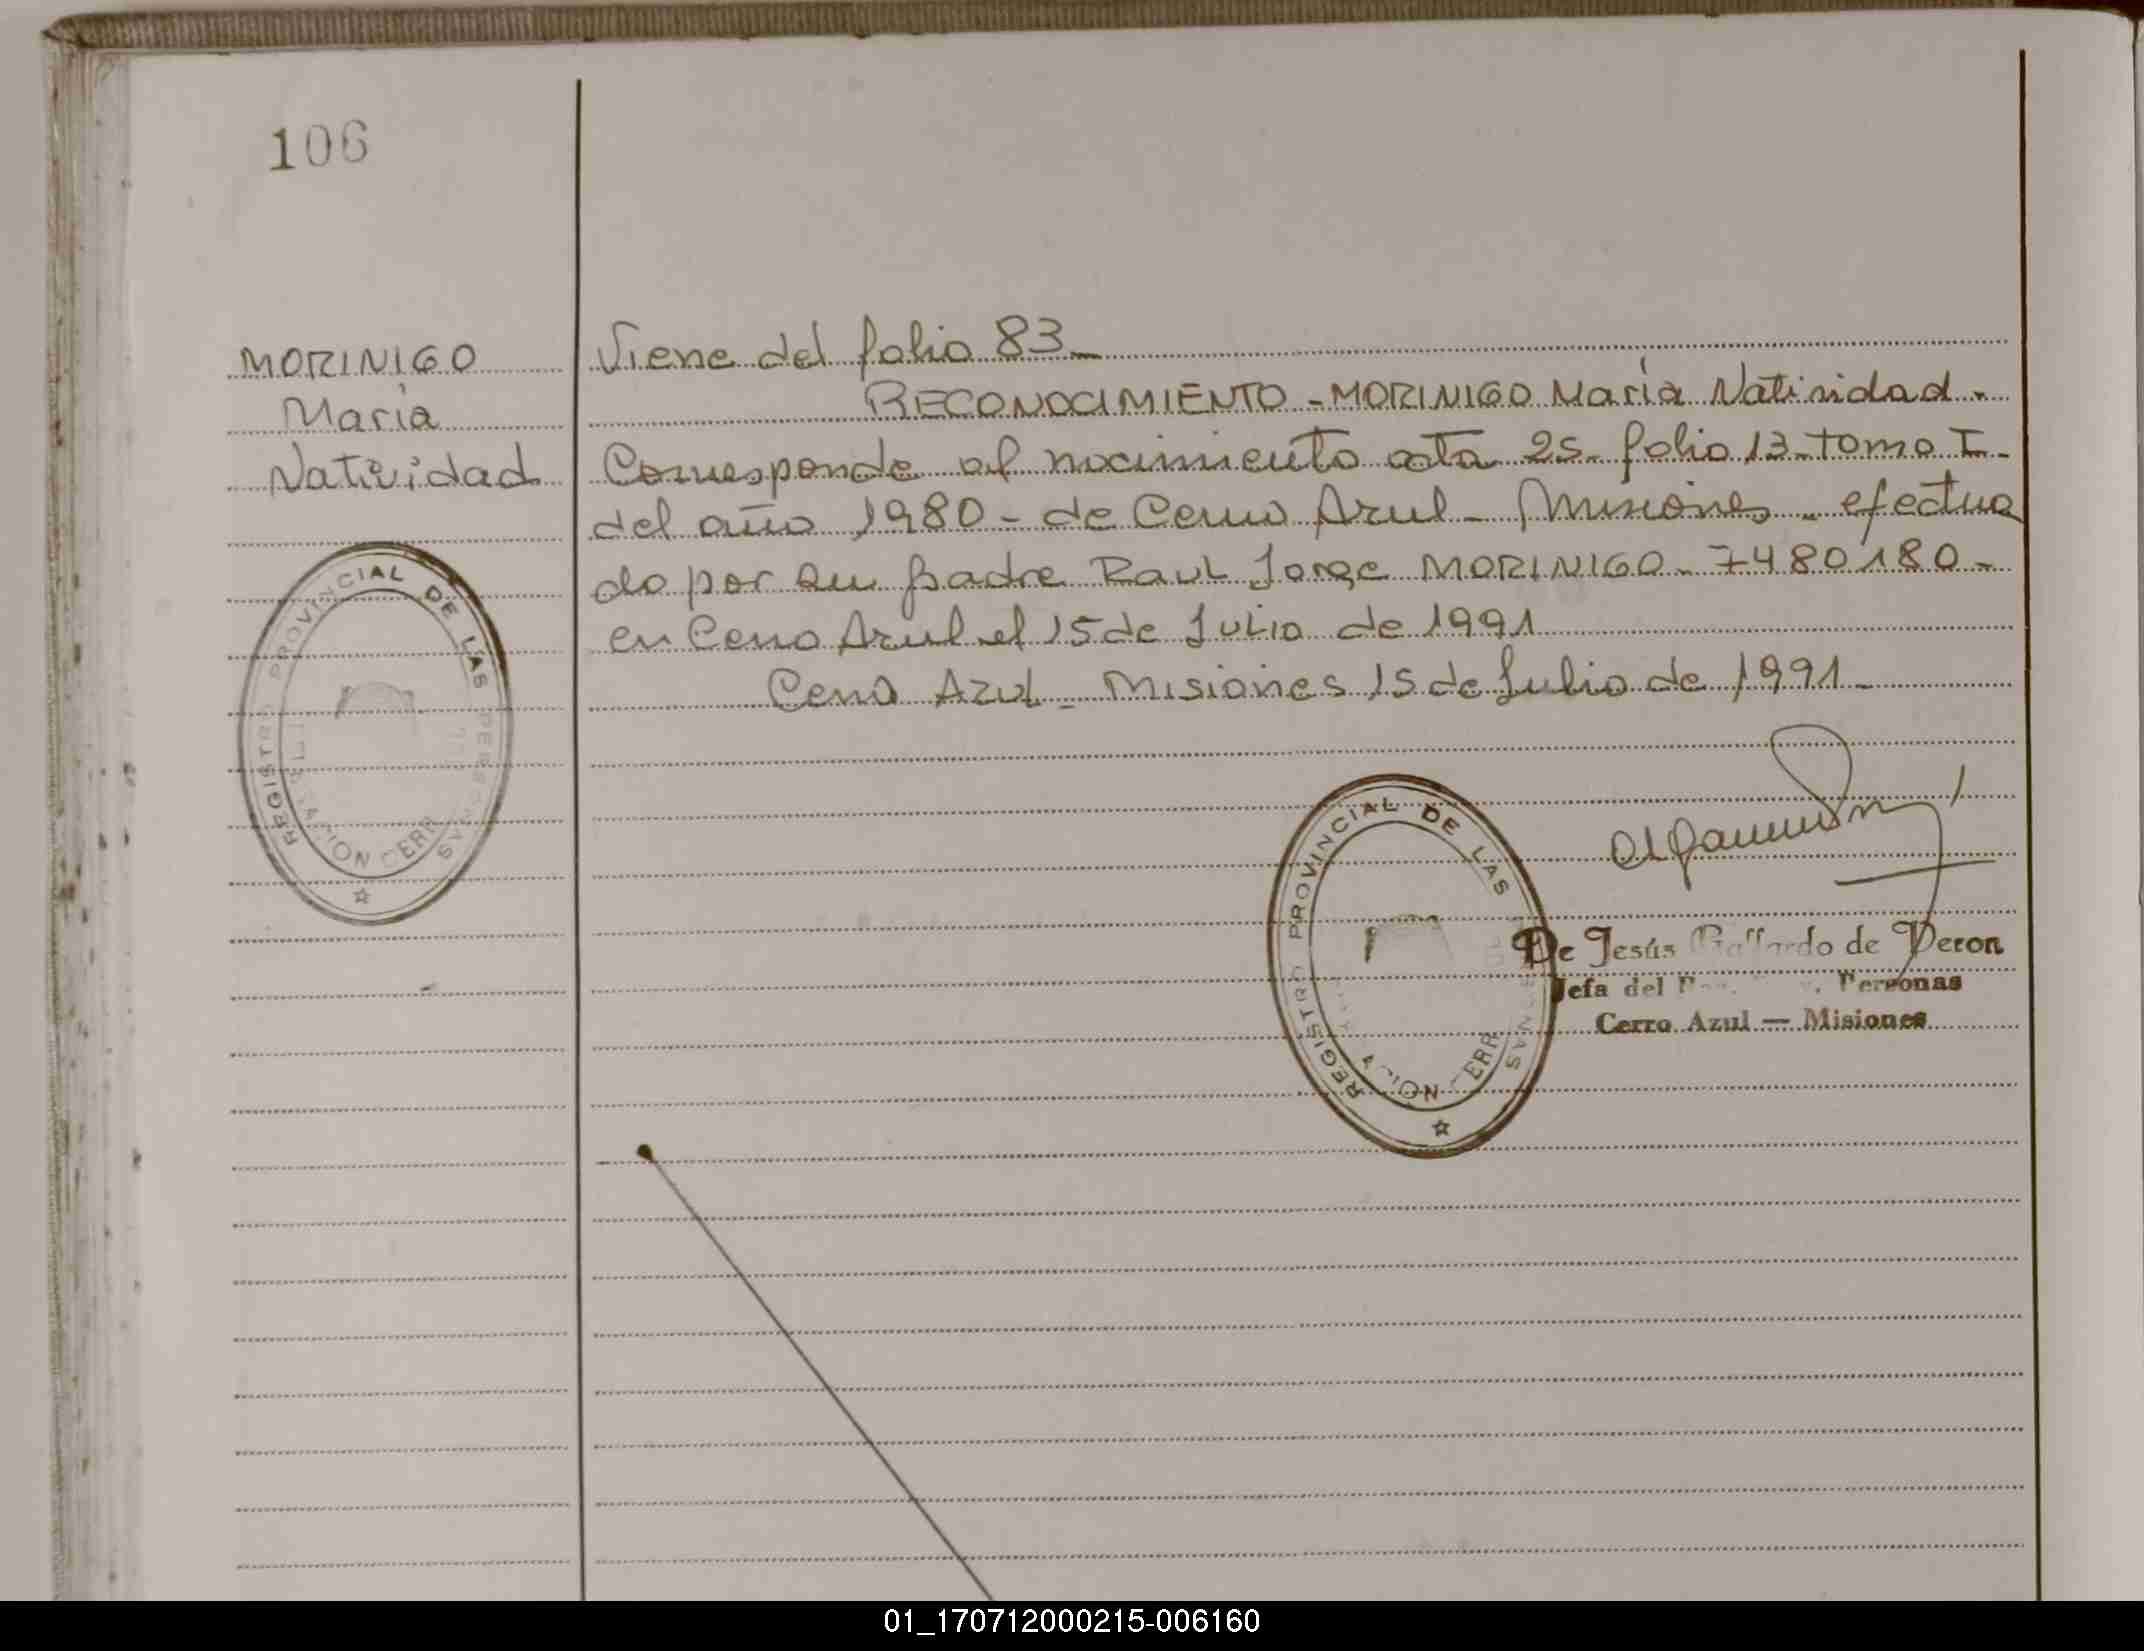 106
MORINIGO
María
Natividad
Viene del folio 83_
RECONOCIMIENTO - MORINIGO María Natividad -
Corresponde al nacimiento acta 25- folio 13- tomo I-
del año 1980 - de Cerro Azul - Misiones - efectua
do por su padre Raul Jorge MORINIGO - 7480180 -
en Cerro Azul el 15 de Julio de 1991
Cerro Azul - Misiones 15 de Julio de 1991 -
REGISTRO PROVINCIAL DE LAS PERSONAS
CERR
REGISTRO PROVINCIAL DE LAS
De Jesús Gallardo de Peron
Jefa del Personas
Cerro Azul — Misiones
01_170712000215-006160